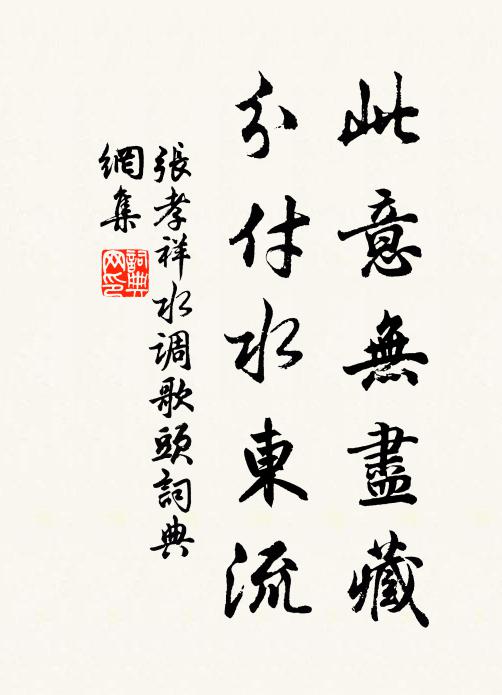 此意無盡藏
分付水東流
張孝祥水调歌頭詞典
網集
詞典
网印